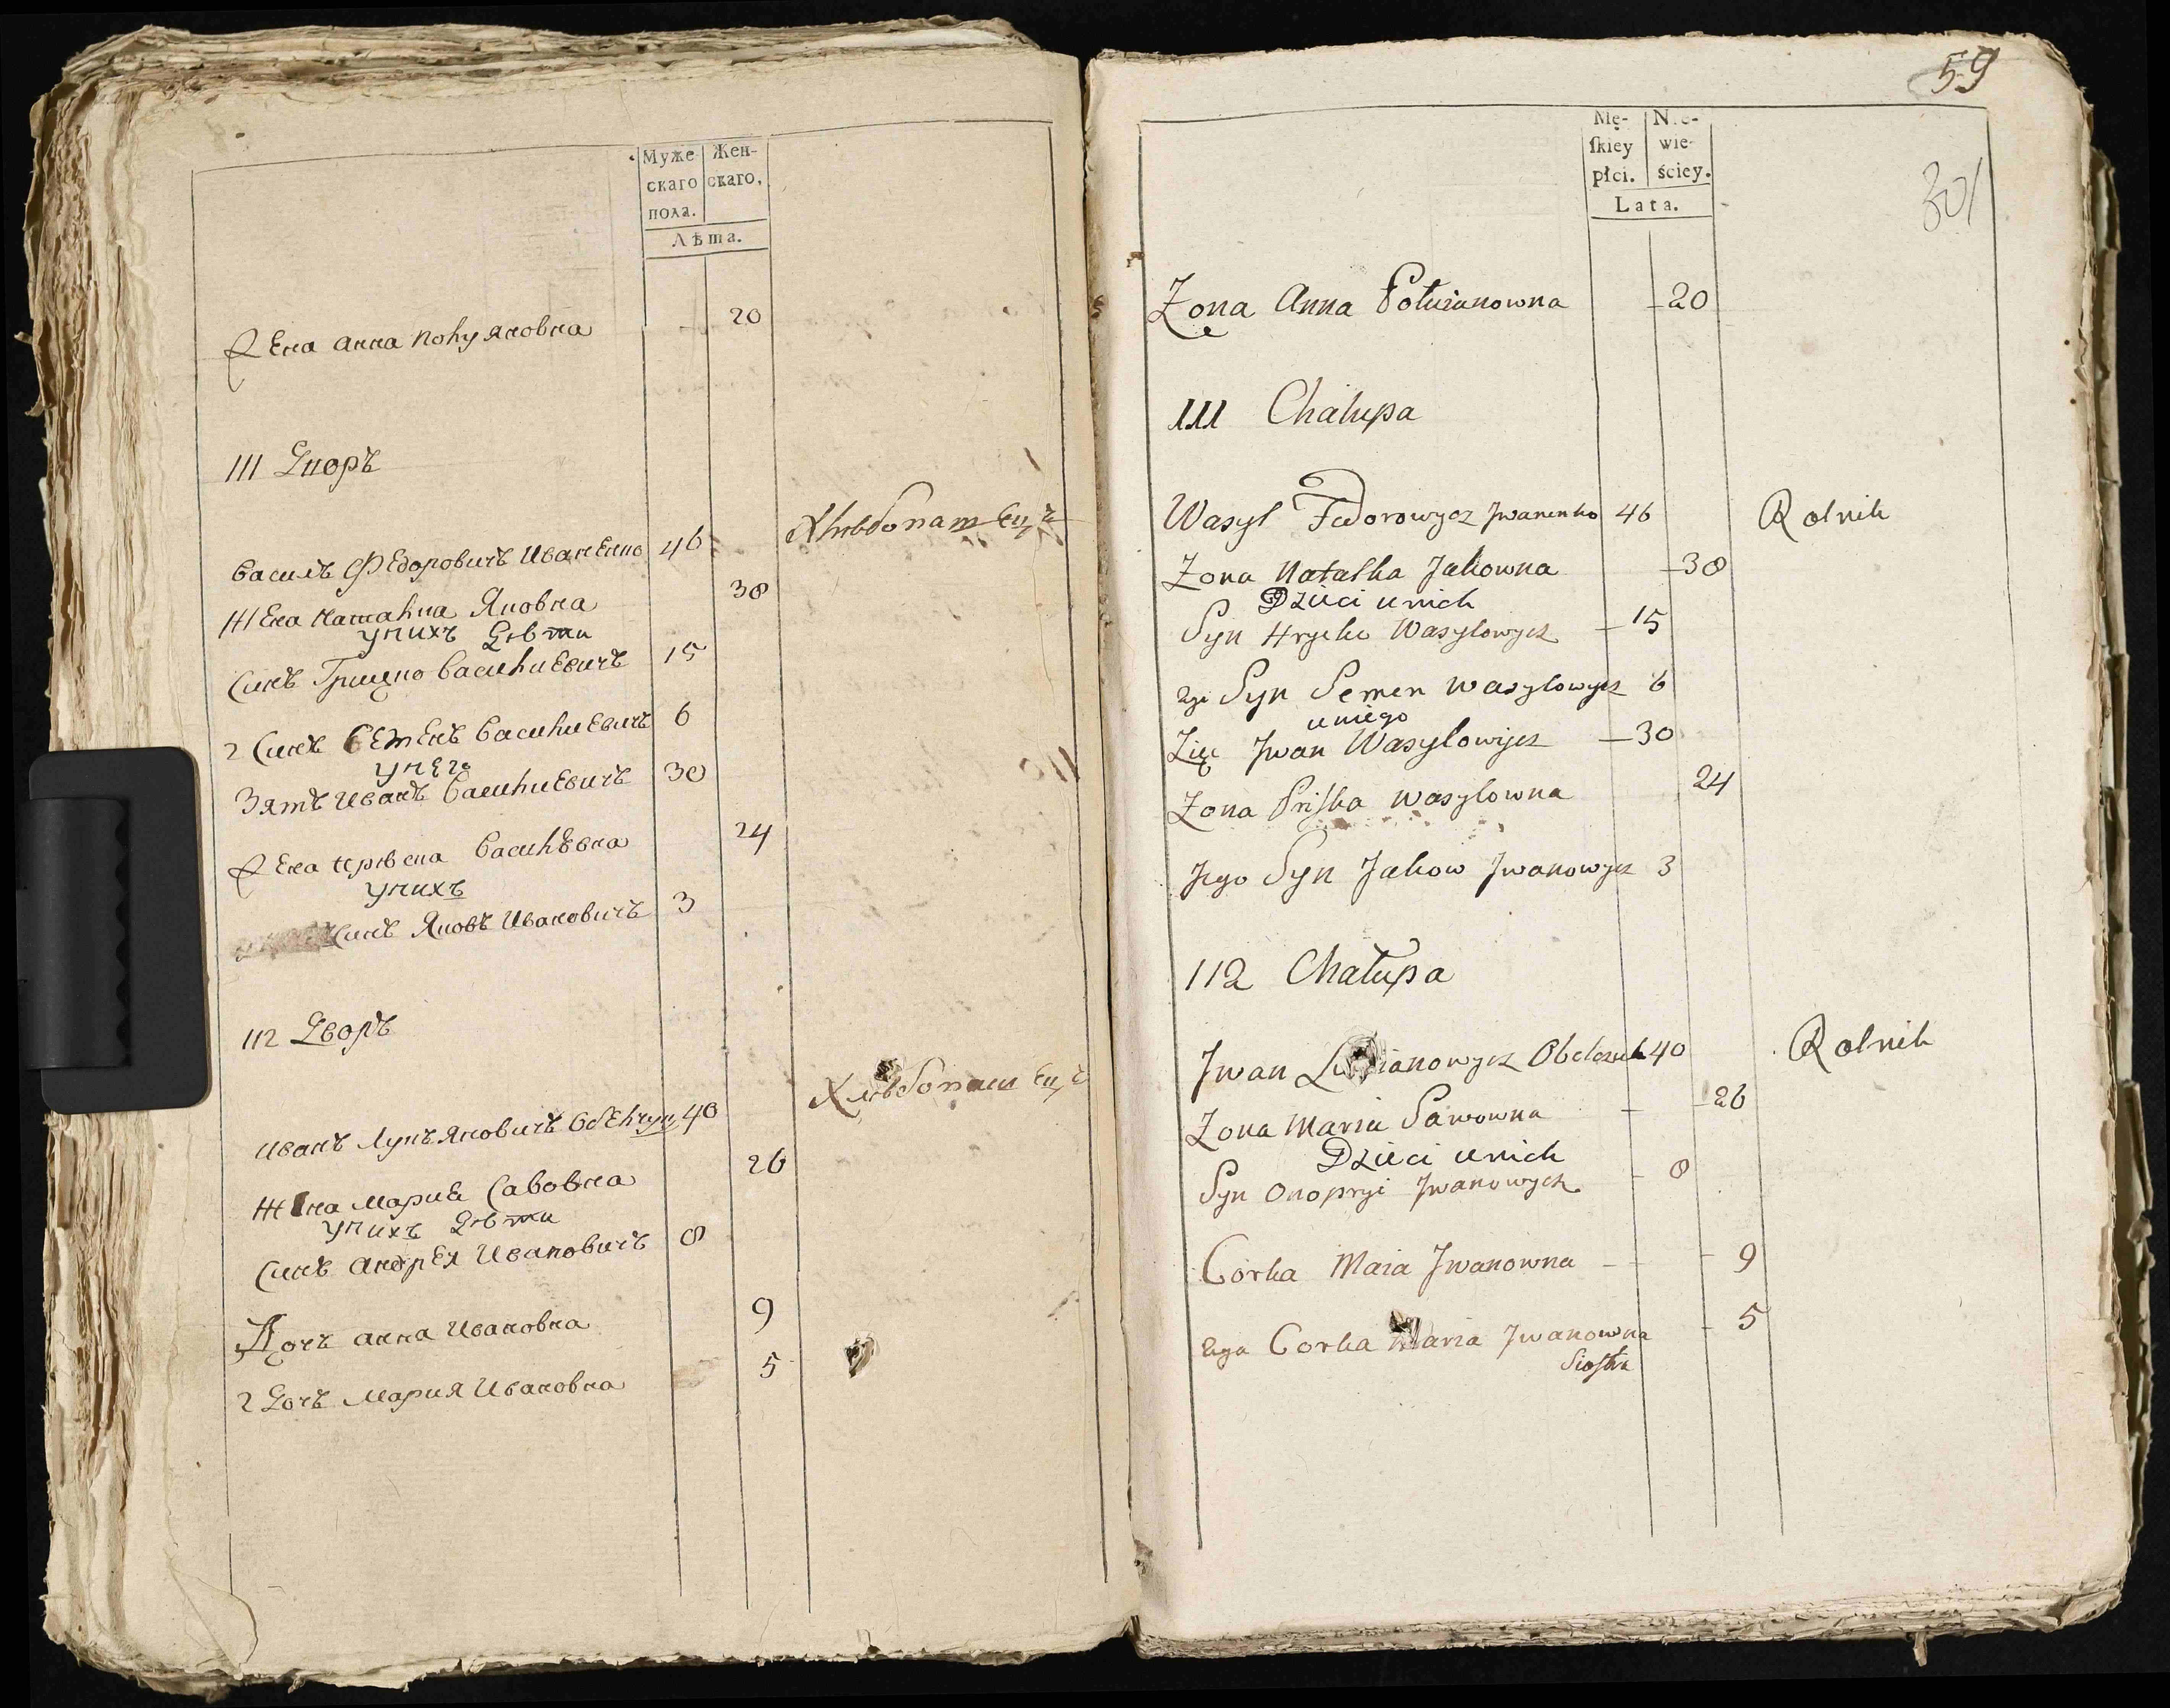 Муже Жен-
скаго скаго.
пола.
Лѣта.
Жена Анна Полуяновна 20
111 Дворъ
Василъ Федоровичъ Иваненко 46 Хлѣбопашецъ
Жена Наталка Яковна 38
у нихъ дѣти
Синъ Грицко Василиевичъ 15
2 Синъ Семенъ Василиевичъ 6
у него
Зятъ Иванъ Василиевичъ 30
Жена Прѣска Василѣвна 24
у нихъ
Синъ Яковъ Ивановичъ 3
112 Дворъ
Иванъ Лукъяновичъ 40 Хлѣбопашецъ
Жена Мария Савовна 26
у нихъ дѣти
Синъ Андрея Ивановичъ 8
Дочъ Анна Ивановна 9
2 Дочъ Мария Ивановна 5
59
301
Mę- Nie-
skiey wie-
płci. ściey.
Lata.
Zona Anna Połuianowna 20
111 Chałupa
Wasyl Fedorowycz Jwanenko 46 Rolnik
Zona Natalka Jakowna 38
Dzieci u nich
Syn Hrycko Wasylowycz 15
2gi Syn Semen Wasylowycz 6
u niego
Zięć Jwan Wasylowycz 30
Zona Priska Wasylowna 24
Jego Syn Jakow Jwanowycz 3
112 Chałupa
Jwan 40 Rolnik
Zona Maria Sawowna 26
Dzieci u nich
Syn Onopryi Jwanowycz 8
Corka Maia Jwanowna 9
2ga Corka Maria Jwanowna 5
Siostra